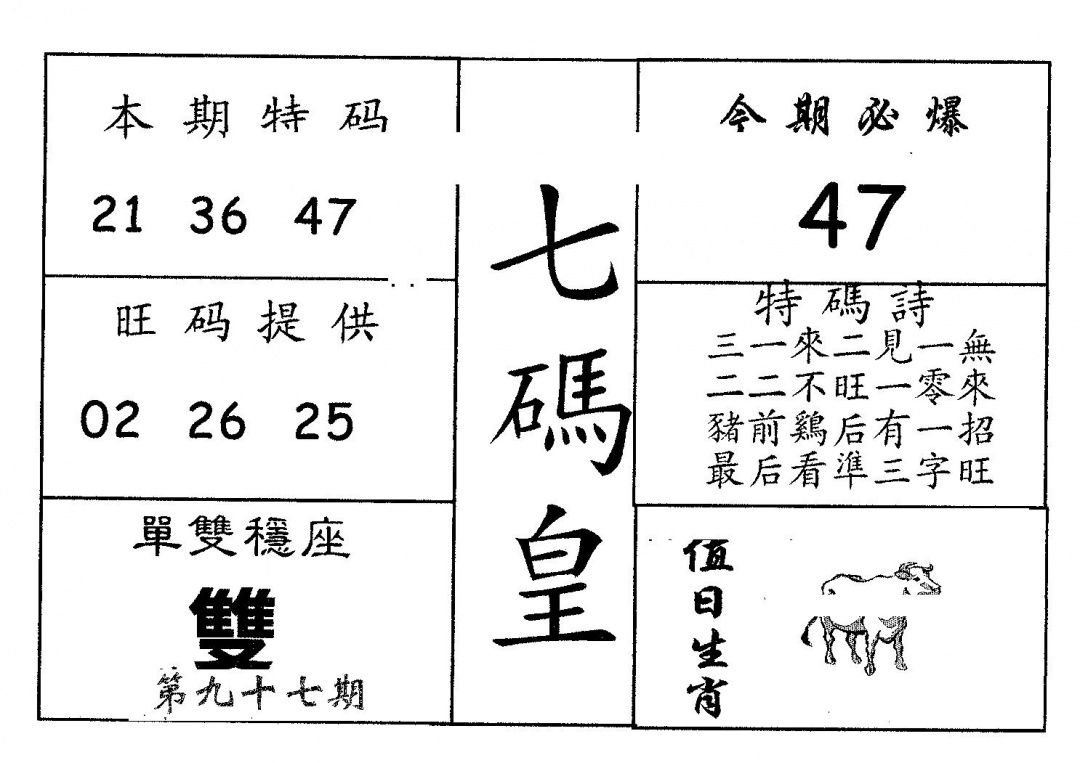 本期特码
21 36 47
旺码提供
02 26 25
單雙穩座
雙
第九十七期
七碼皇
今期必爆
47
特碼詩
三一來二見一無
二二不旺一零來
豬前鷄后有一招
最后看準三字旺
值日生肖